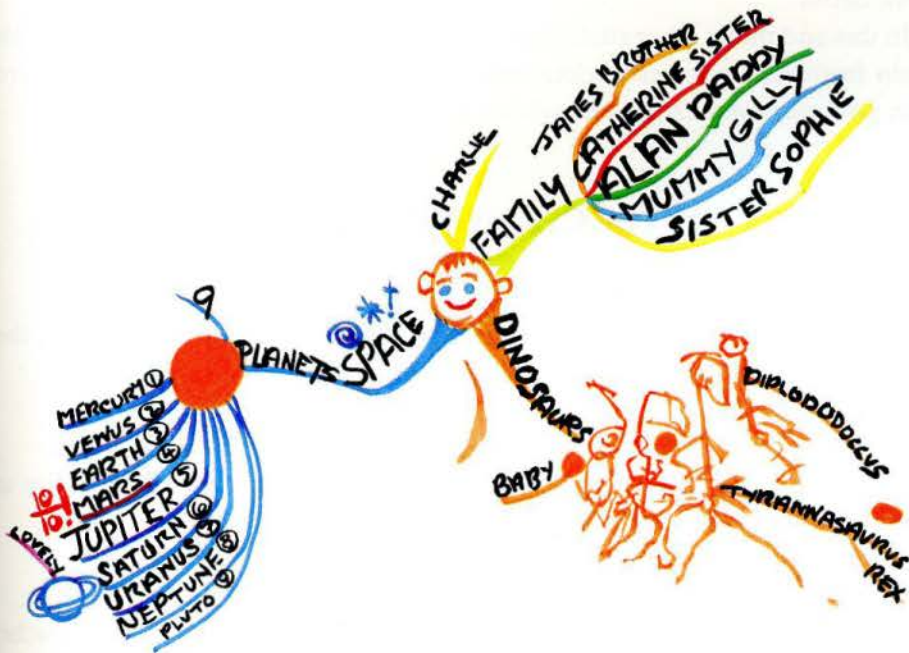 JAMES BROTHER
CATHERINE SISTER
ALAN DADDY
MUMMY GILLY
SISTER SOPHIE
FAMILY
CHARLIE
SPACE
PLANETS
9
MERCURY 1
VENUS 2
EARTH 3
MARS 4
10/10!
JUPITER 5
SATURN 6
LOVELY
URANUS 7
NEPTUNE 8
PLUTO 9
DINOSAURS
BABY
DIPLODODOCCUS
TYRANNASAURUS
REX